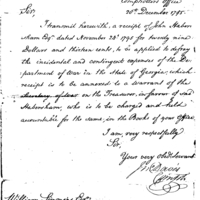 Comptrollers Office
30th December 1795.
Sir,
I transmit herewith, a receipt of John Haber
sham Esqr. dated November 28th 1795 for twenty nine
Dollars and thirteen cents, to be applied to defray
the incidental and contingent expenses of the De
partment of War in the State of Georgia; which
receipt is to be annexed to a warrant of the
Secretary of War on the Treasurer, in favour of said
Habersham, who is to be charged and held
accountable for the same, in the Books of your Office.
I am, very respectfully
Sir,
Your very Obed. Servant
Jno Davis
William Simmons Esqr.